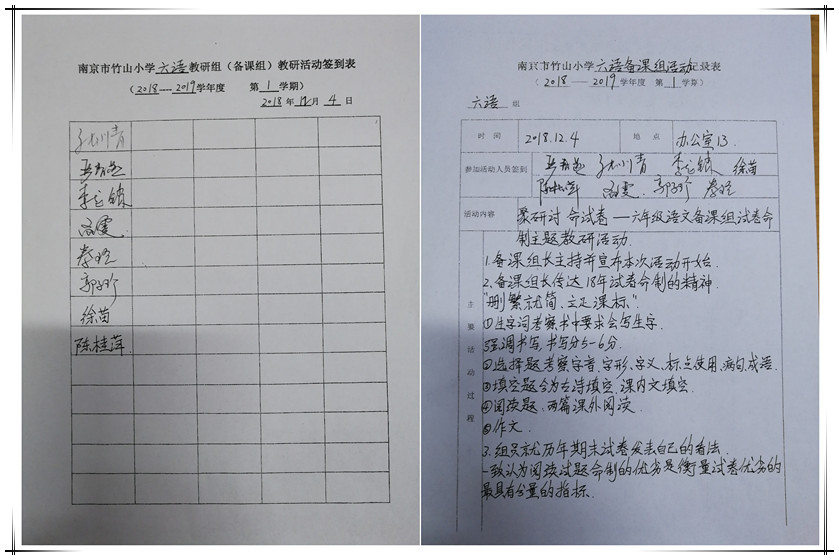 南京市竹山小学六语教研组（备课组）教研活动签到表
（2018----2019学年度 第1学期）
2018年12月4日
李志锁
秦晓
徐苗
陈桂萍
南京市竹山小学六语备课组活动记录表
（2018——2019学年度 第1学期）
六语 组
时间 2018.12.4 地点 办公室13
参加活动人员签到 徐苗
活动内容 聚研讨 命试卷——六年级语文备课组试卷命
制主题教研活动.
主要活动过程
1.备课组长主持并宣布本次活动开始.
2.备课组长传达18年试卷命制的精神
"删繁就简，立足课标".
①生字词考察书中要求会写生字.
强调书写，书写分5-6分.
②选择题考察字音、字形、字义、标点使用、病句、成语.
③填空题分为古诗填空、课内文填空.
④阅读题、两篇课外阅读.
⑤作文.
3.组员就历年期末试卷发表自己的看法.
一致认为阅读试题命制的优劣是衡量试卷优劣的
最具有分量的指标.